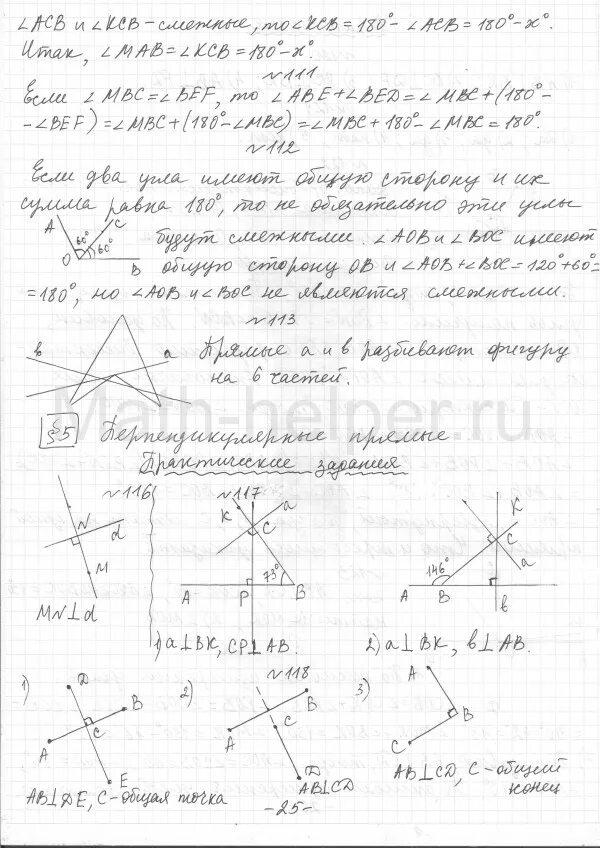 ∠ACB и ∠KCB - смежные, то ∠KCB = 180° - ∠ACB = 180° - x°.
Итак, ∠MAB = ∠KCB = 180° - x°.
№111
Если ∠MBC = ∠BEF, то ∠ABE + ∠BED = ∠MBC + (180° -
- ∠BEF) = ∠MBC + (180° - ∠MBC) = ∠MBC + 180° - ∠MBC = 180°.
№112
Если два угла имеют общую сторону и их
сумма равна 180°, то не обязательно эти углы
A C 60° 60° O B
будут смежными. ∠AOB и ∠BOC имеют
общую сторону OB и ∠AOB + ∠BOC = 120° + 60° =
= 180°, но ∠AOB и ∠BOC не являются смежными.
№113
в a
Прямые a и в разбивают фигуру
на 6 частей.
Math-helper.ru
§5 Перпендикулярные прямые
Практические задания
№116
N d M
MN⊥d
№117
K a C 73° A P B
1) a⊥BK, CP⊥AB.
K C a 146° A B в
2) a⊥BK, в⊥AB.
№118
1) D B C A E
AB⊥DE, C - общая точка
2) B C A D
AB⊥CD
3) A B C
AB⊥CD, C - общий
конец
- 25 -